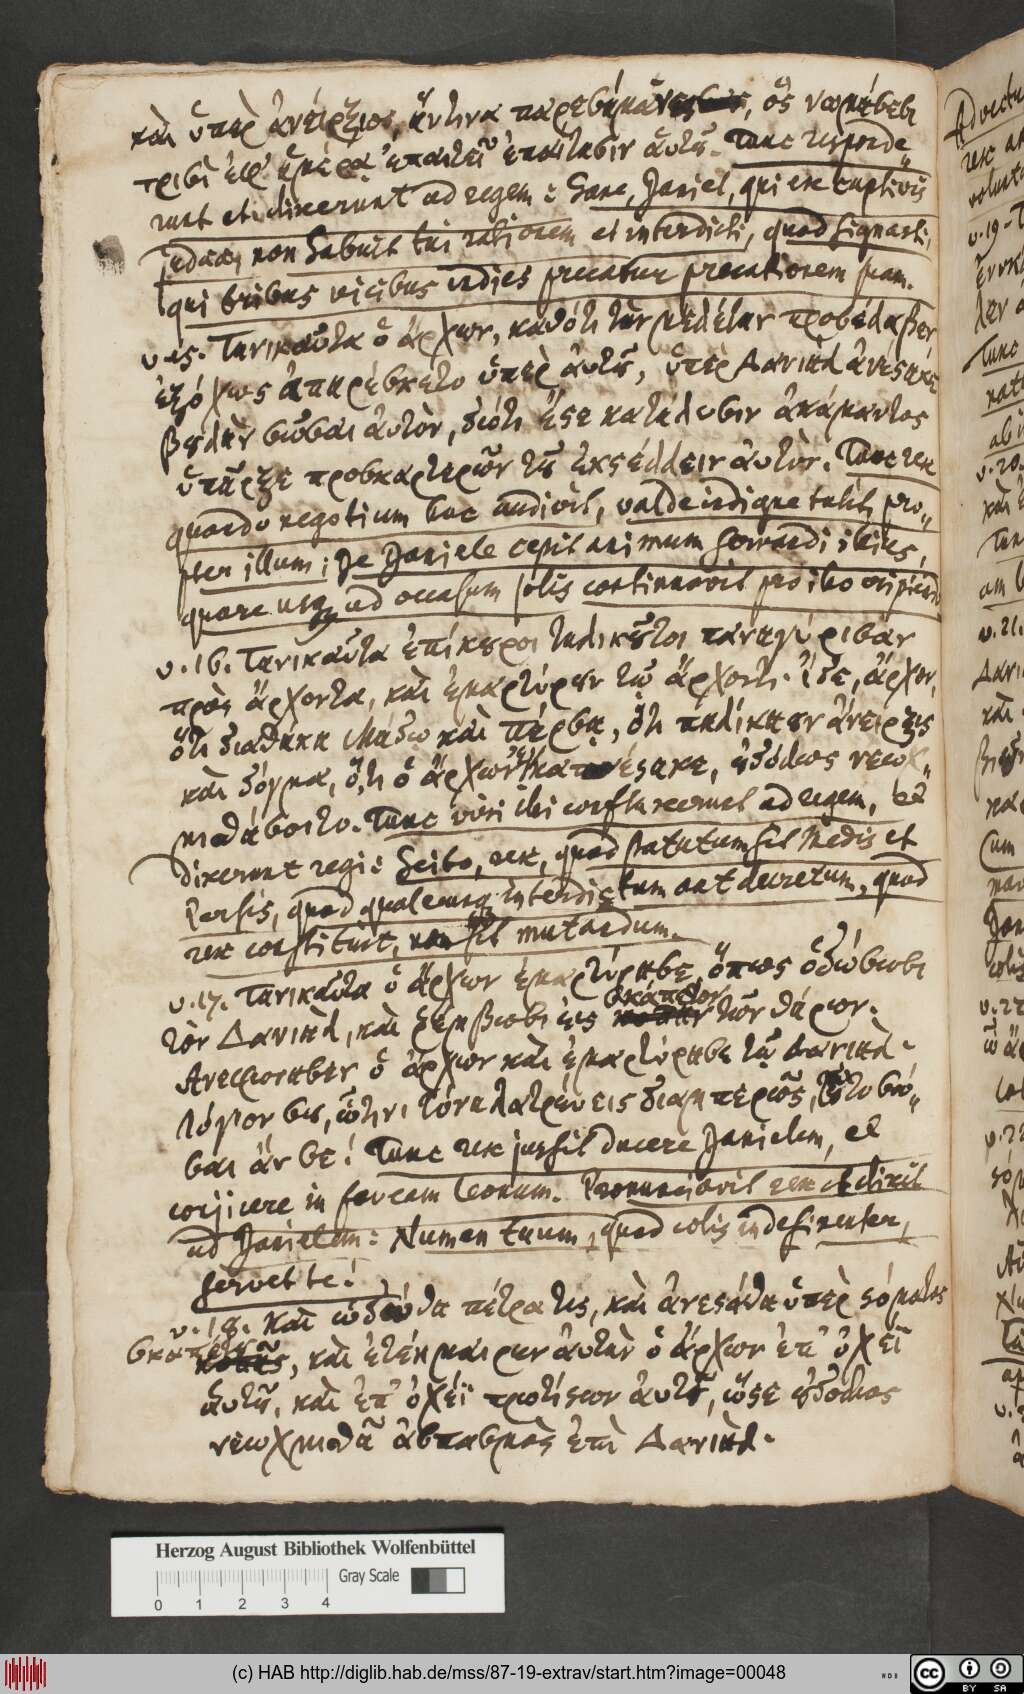 καὶ ὑπὲρ ἀνείρξιος, ἥντινα παρεσήμανες, ὃς
τρισὶ ἐφ' ἡμέρᾳ ἐπαιτεῖ ἐπαίτησιν ἁυτοῦ. Tunc responde„
runt et dixerunt ad regem: Hanc, Daniel, qui ex captivis
Judaea, non habuit tui rationem et interdicti, quod signasti,
qui tribus vicibus indies precatur precationem suam.
v. 15. Τανικαῦτα ὁ ἄρχων, καθότι τὴν μελέταν προσέλαβεν
ἐξόχως ἀπηρέσκετο ὑπὲρ ἀυτοῦ, ὑπὲρ Δανιὴλ ἀνέστακε
βουλὴν σῶσαι ἀυτὸν, διότι ἔστε κατάδυσιν ἀκάμαντος
ὑπῆρξε προσκαρτερῶν τοῦ ἐκστέλλειν ἀυτὸν. Tunc rex
quando negotium hoc audivit, valde indigne tulit pro„
pter illum; de Daniele cepit animum servandi illius,
quare usq ad occasum solis continuavit pro illo eripiendo
v. 16. Τανικαῦτα ἐπίκουροι τηλικοῦτοι πανηγύρισαν
πρὸς ἄρχοντα, καὶ ἐμαρτύρουν τῷ ἄρχοντι. ἴδε, ἄρχον,
ὅτι διαθήκη Μήδῳ καὶ Πέρσῃ, ὅτι πηλίκηουν ἀνειρξις
καὶ δόγμα, ὅ,τι ὁ ἄρχων κατέστακε, οὐδόλως νεωχ„
μηθάσοιτο. Tunc viri illi confluxerunt ad regem, et
dixerunt regi: Scito, rex, quod statutum sit Medis et
Persis, quod qualecunq interdictum aut decretum, quod
rex constituit, non sit mutandum.
v. 17. Τανικαῦτα ὁ ἄρχων ἐμαρτύρησε, ὅπως ὁδώσωσι
τὸν Δανιὴλ, καὶ ῥέμβωσι εἰς σκάπετον τῶν θάριον.
Ἀνεφώνησεν ὁ ἄρχων καὶ ἐμαρτύρησε τῷ Δανιὴλ.
Λόγιον σου, ᾧτινι τύνη λατρεύεις διαμπερέως, σώ„
σαι ἄν σε! Tunc rex jussit ducere Danielem, et
conjicere in foveam leonum. Pronunciavit rex et dixit
ad Danielem: Numen tuum, quod colis indesinenter,
servet te!
v. 18. καὶ ὡδώθη πέτρα τις, καὶ ἀνεστάθη ὑπὲρ στόματος
σκαπέτου, καὶ ἐτέκμαιρεν ἀυτὴν ὁ ἄρχων ἐπ' ὀχεῖ
ἁυτοῦ, καὶ ἐπ' ὀχέϊ προτίστων ἁυτοῦ, ὥστε οὐδόλως
νεωχμηθᾶ ἀσπασμὸς ἐπὶ Δανιὴλ.
Herzog August Bibliothek Wolfenbüttel
Gray Scale
0 1 2 3 4
(c) HAB http://diglib.hab.de/mss/87-19-extrav/start.htm?image=00048
cc BY SA